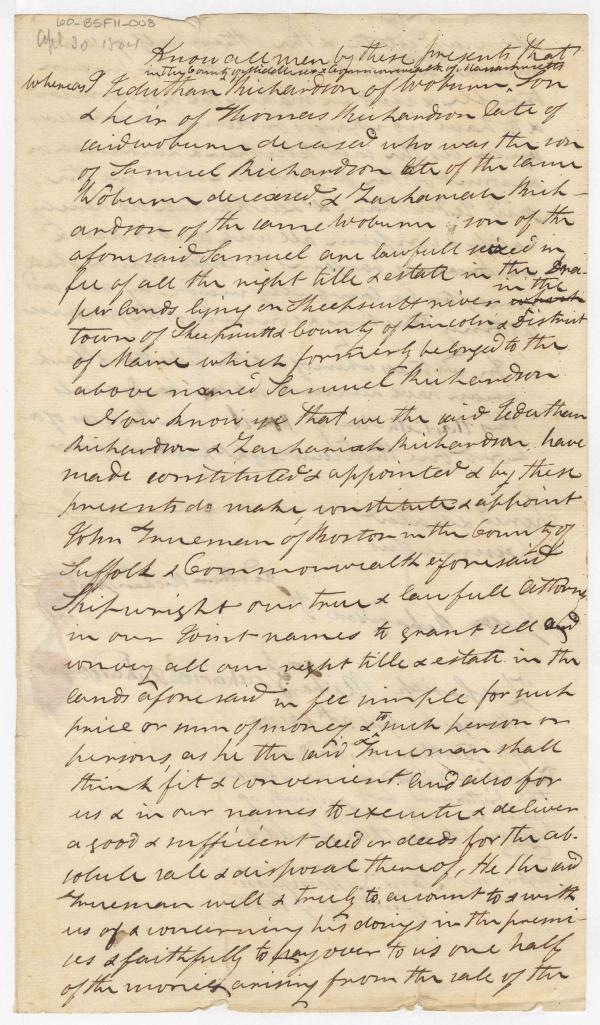 60-BSF11-008
Apl 30 1804
Know all men by these presents that
in the County of Middlesex & Commonwealth of Massachusetts
Whereas I Jeduthan Richardson of Woburn, Son
& heir of Thomas Richardson late of
said Woburn deceased who was the son
of Samuel Richardson late of the same
Woburn deceased. & Zachariah Rich-
ardson of the same Woburn son of the
aforesaid Samuel are lawfull seized in
fee of all the right title & estate in the Dra-
per lands lying on Sheepscutt river in the
town of Sheepscutt & County of Lincoln & District
of Maine which formerly belonged to the
above named Samuel Richardson
Now know ye that we the said Jeduthan
Richardson & Zachariah Richardson, have
made constituted & appointed & by these
presents do make, constitute & appoint
John Trueman of Boston in the County of
Suffolk & Commonwealth aforesaid
Shipwright our true & lawfull Attorney
in our Joint names to grant sell and
convey all our right title & estate in the
lands aforesaid in fee simple for such
price or sum of money & to such person or
persons, as he the said Trueman shall
think fit & convenient. and also for
us & in our names to execute & deliver
a good & sufficient deed or deeds for the ab-
solute sale & disposal thereof, He the said
Trueman well & truly to account to & with
us of & concerning his doings in the premi-
ses & faithfully to pay over to us one half
of the monies arising from the sale of the